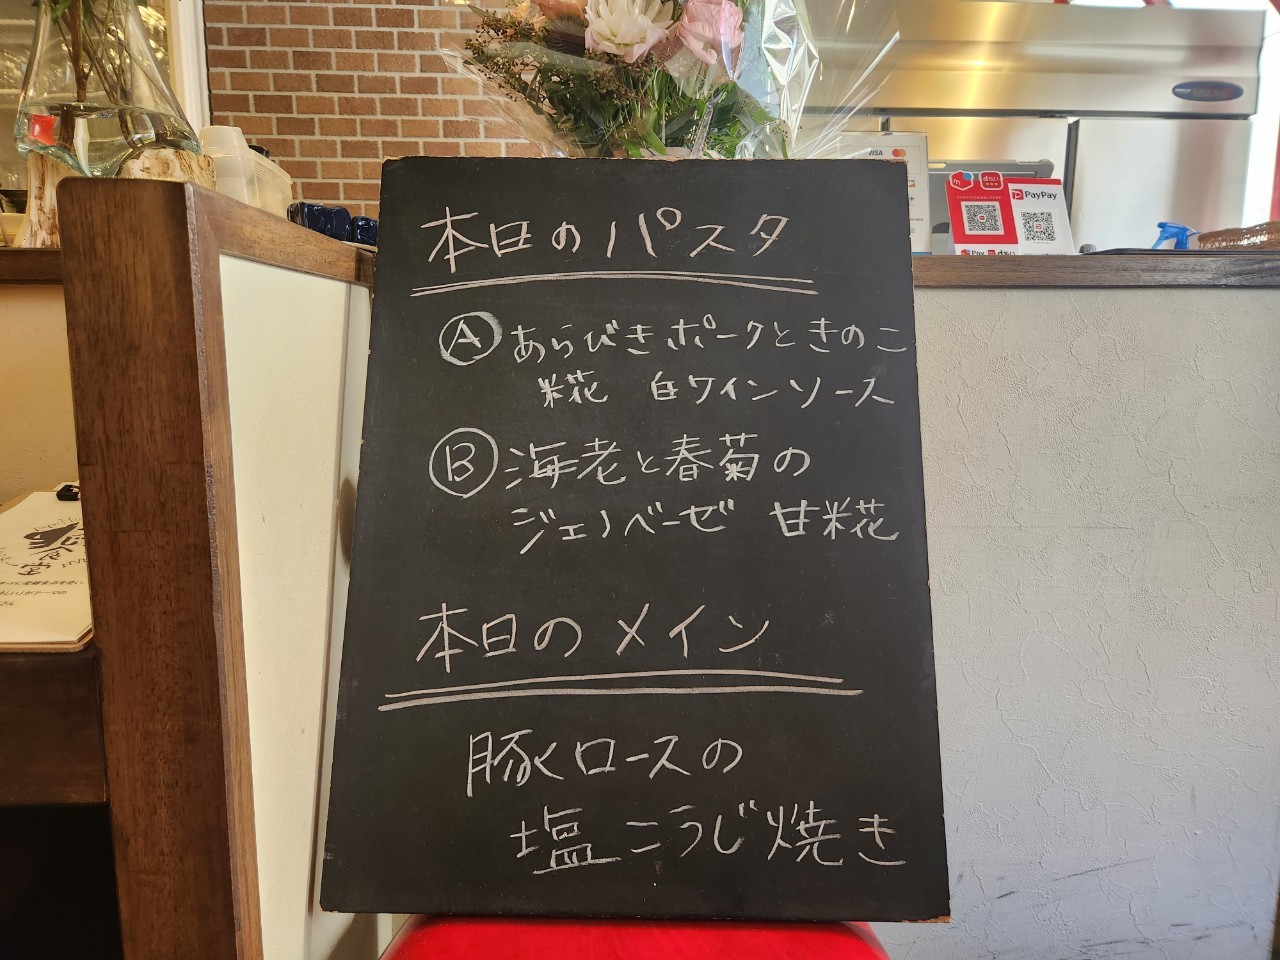 本日のパスタ
Ⓐ あらびきポークときのこ
糀 白ワインソース
Ⓑ 海老と春菊の
ジェノベーゼ 甘糀
本日のメイン
豚ロースの
塩こうじ焼き
VISA
d払い
PayPay